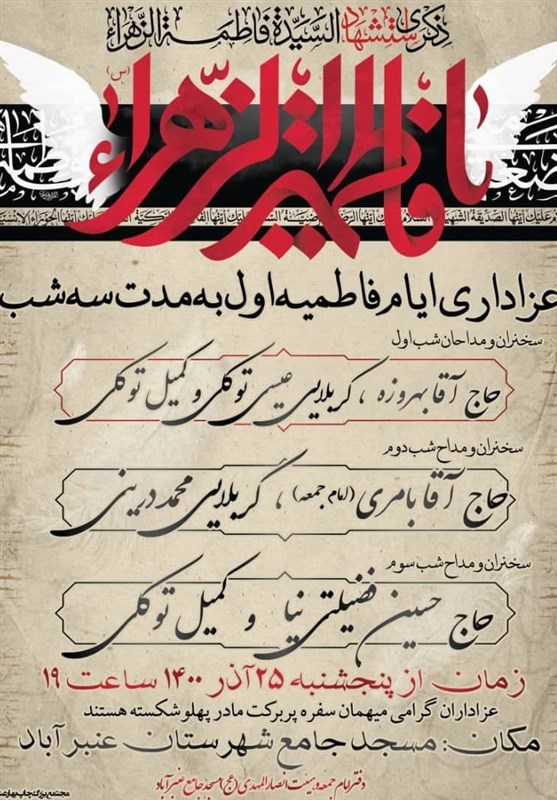 ذکری استشهاد السیّدة فاطمة الزهراء
یا فاطمة الزهراء (س)
عزاداری ایام فاطمیه اول به مدت سه شب
سخنران و مداحان شب اول
حاج آقا بهروزه ، کربلایی عیسی توکلی و کمیل توکلی
سخنران و مداح شب دوم
حاج آقا بامری (امام جمعه) ، کربلایی محمد درینی
سخنران و مداح شب سوم
حاج حسین فضیلتی نیا و کمیل توکلی
زمان از پنجشنبه ۲۵ آذر ۱۴۰۰ ساعت ۱۹
عزاداران گرامی میهمان سفره پربرکت مادر پهلو شکسته هستند
مکان: مسجد جامع شهرستان عنبرآباد
دفتر امام جمعه و هیئت انصارالمهدی (عج) مسجد جامع عنبرآباد
مجتمع بزرگ چاپ بهار